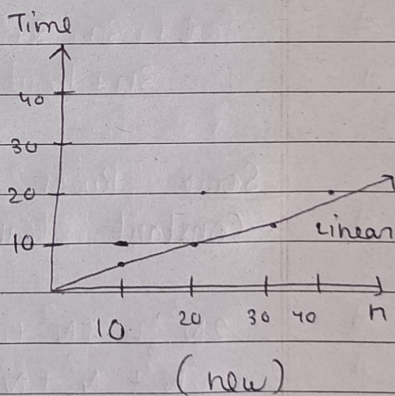 Time
40
30
20
10
Linear
10 20 30 40 n
(new)